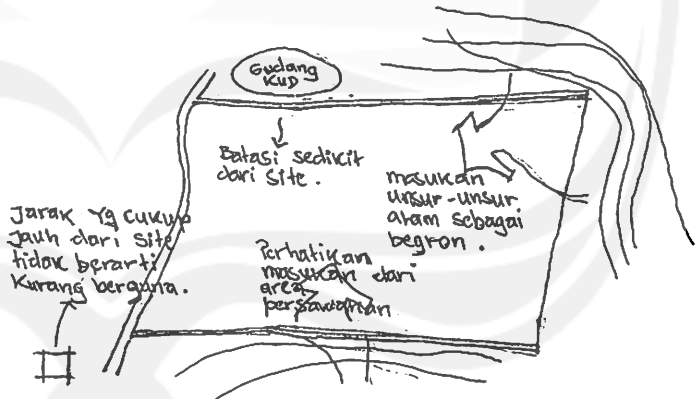 Gudang
KUD
Batasi sedikit
dari site.
masukan
unsur-unsur
alam sebagai
begron.
Jarak Yg cukup
jauh dari site
tidak berarti
kurang berguna.
Perhatikan
masukan dari
area
persawahan